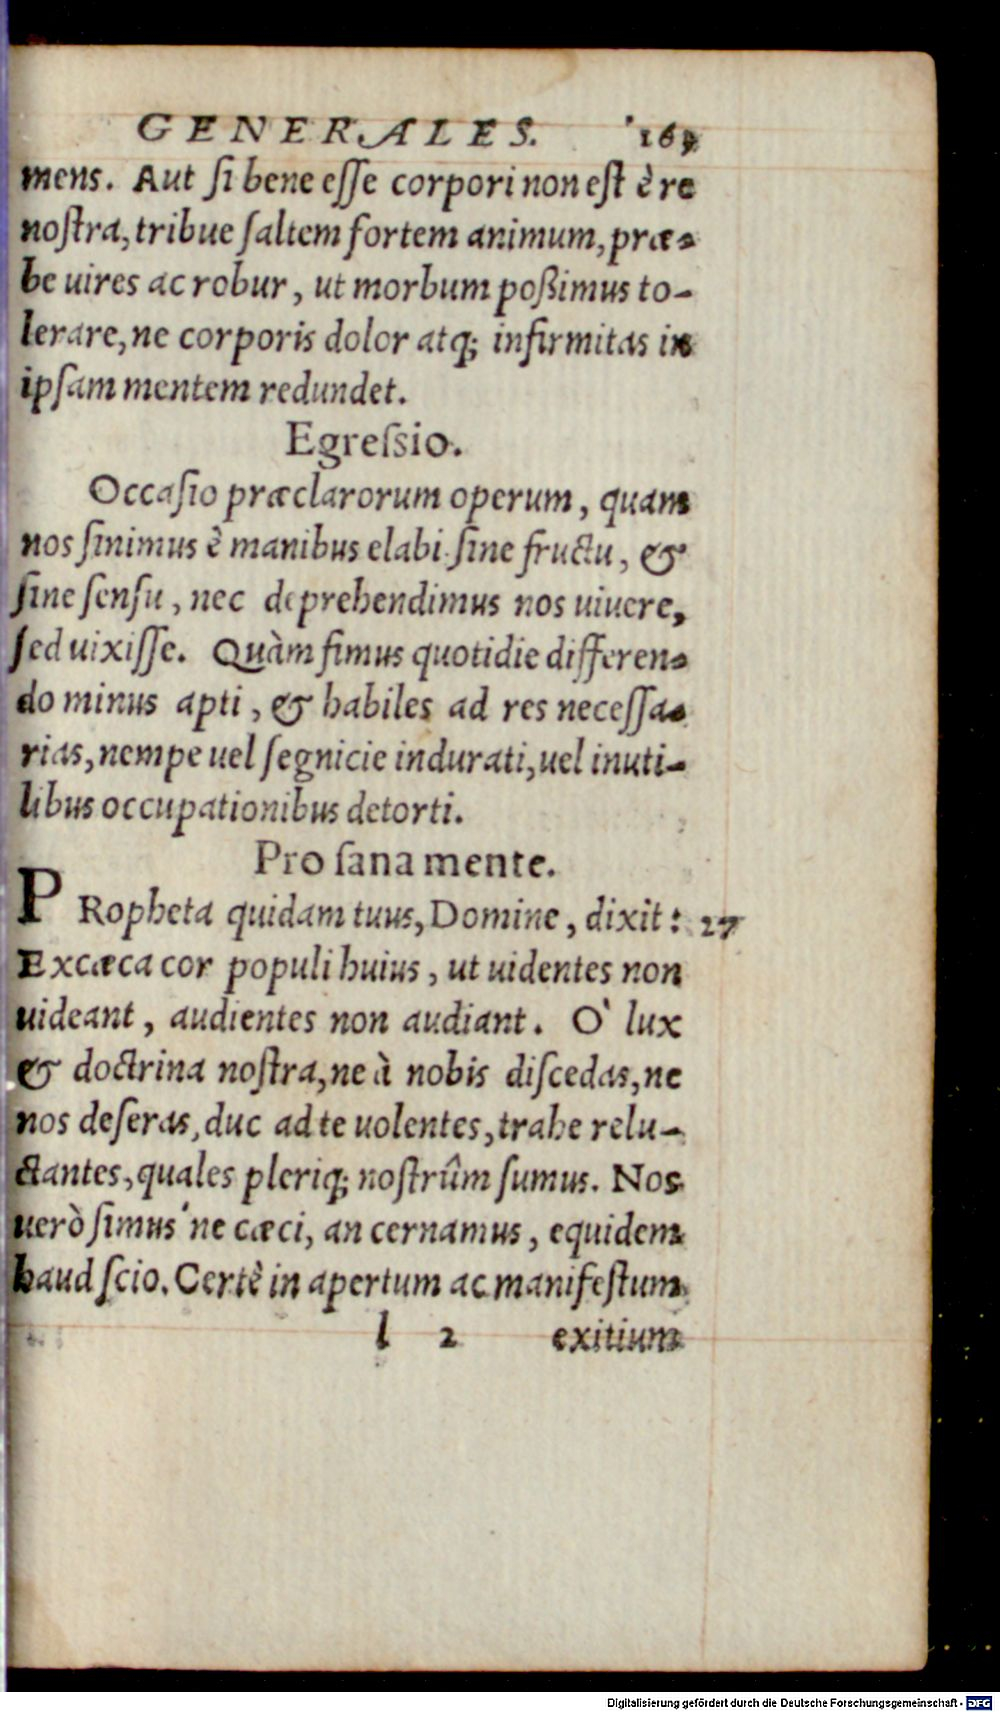 GENERALES.
mens. Aut ſi bene eſſe corpori non eſt è re
noſtra, tribue ſaltem fortem animum, præ-
be uires ac robur, ut morbum poßimus to-
lerare, ne corporis dolor atq; infirmitas in
ipſam mentem redundet.
Egreſsio.
Occaſio præclarorum operum, quam
nos ſinimus è manibus elabi ſine fructu, &
ſine ſenſu, nec deprehendimus nos uiuere,
ſed uixiſſe. Quàm fimus quotidie differen-
do minus apti, & habiles ad res neceſſa-
rias, nempe uel ſegnicie indurati, uel inuti-
libus occupationibus detorti.
Pro ſana mente.
PRopheta quidam tuus, Domine, dixit: 27
Excæca cor populi huius, ut uidentes non
uideant, audientes non audiant. O` lux
& doctrina noſtra, ne à nobis diſcedas, ne
nos deſeras, duc ad te uolentes, trahe relu-
ctantes, quales pleriq; noſtrûm ſumus. Nos
uerò ſimus'ne cæci, an cernamus, equidem
haud ſcio. Certè in apertum ac manifeſtum
l 2 exitium
Digitalisierung gefördert durch die Deutsche Forschungsgemeinschaft - DFG